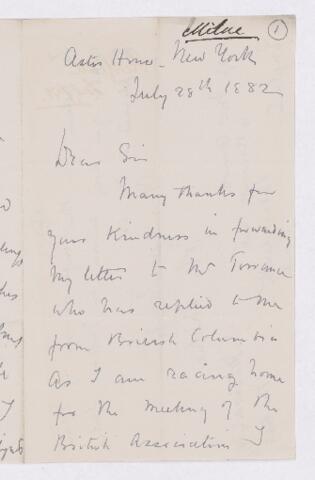 Milne 1
Astor House - New York
July 28th 1882
Dear Sir
Many thanks for
your kindness in forwarding
my letter to Mr Torrance
who has replied to me
from British Columbia
As I am racing home
for the Meeting of the
British Association I